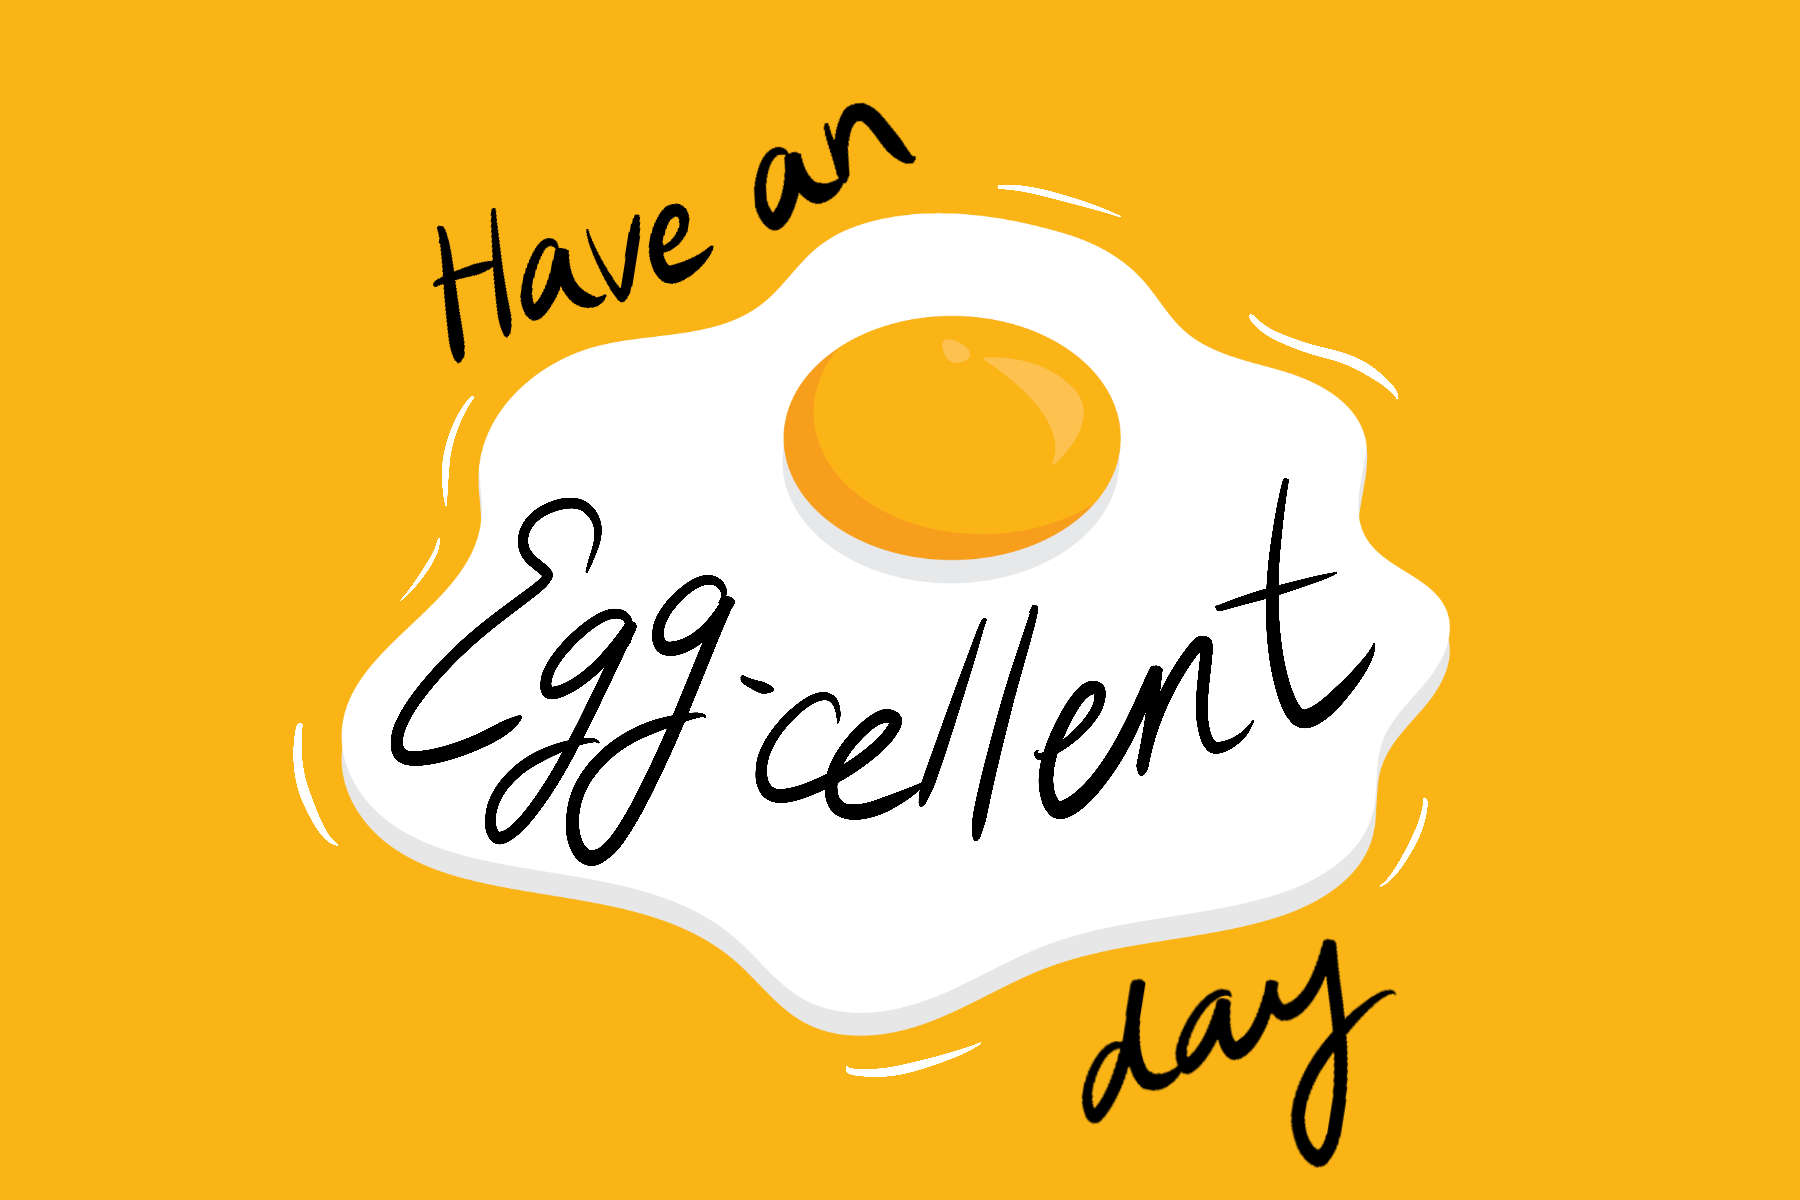 Have an
Egg-cellent
day